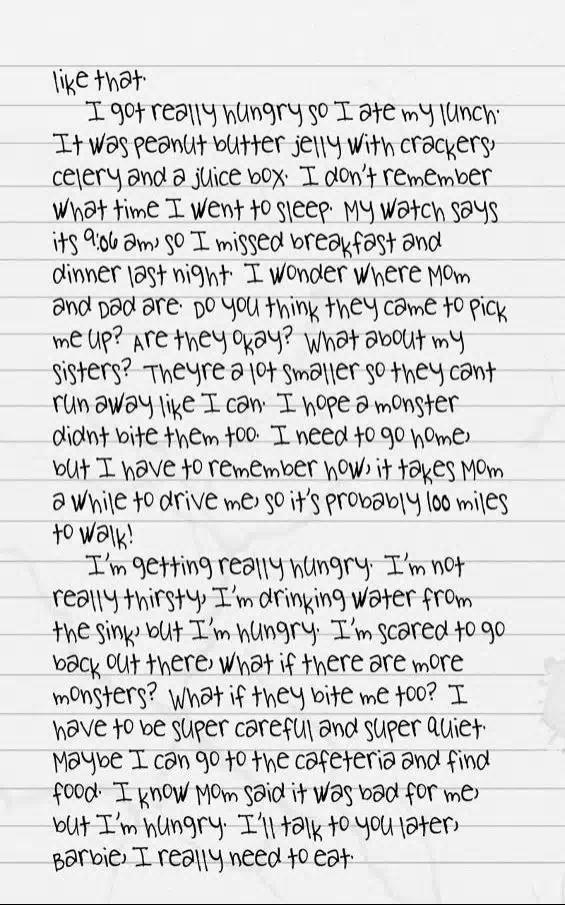 like that.
I got really hungry so I ate my lunch.
It was peanut butter jelly with crackers,
celery and a juice box. I don't remember
what time I went to sleep. My watch says
its 9:06 am, so I missed breakfast and
dinner last night. I wonder where Mom
and Dad are. Do you think they came to pick
me up? Are they okay? What about my
sisters? Theyre a lot smaller so they cant
run away like I can. I hope a monster
didnt bite them too. I need to go home,
but I have to remember how, it takes Mom
a while to drive me, so it's probably 100 miles
to walk!
I'm getting really hungry. I'm not
really thirsty, I'm drinking water from
the sink, but I'm hungry. I'm scared to go
back out there, what if there are more
monsters? What if they bite me too? I
have to be super careful and super quiet.
Maybe I can go to the cafeteria and find
food. I know Mom said it was bad for me,
but I'm hungry. I'll talk to you later,
Barbie, I really need to eat.